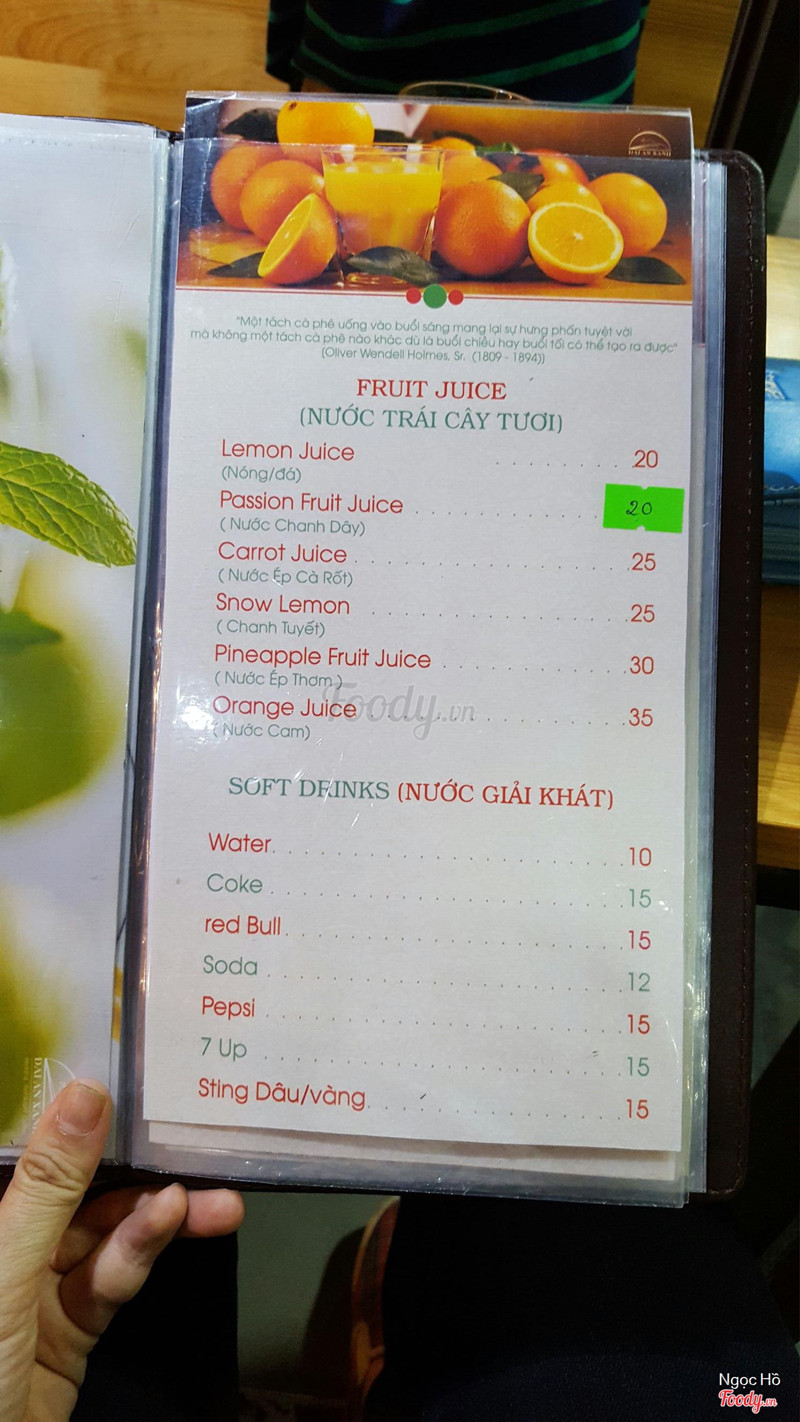 DAI AN XANH
"Một tách cà phê uống vào buổi sáng mang lại sự hưng phấn tuyệt vời
mà không một tách cà phê nào khác dù là buổi chiều hay buổi tối có thể tạo ra được"
(Oliver Wendell Holmes, Sr. (1809 - 1894))
FRUIT JUICE
(NƯỚC TRÁI CÂY TƯƠI)
Lemon Juice . . . . . . . . 20
(Nóng/đá)
Passion Fruit Juice . . . . . . . . . . . . 20
( Nước Chanh Dây)
Carrot Juice . . . . . . . . . . . . . . . . 25
( Nước Ép Cà Rốt)
Snow Lemon . . . . . . . . . . . . . . . 25
( Chanh Tuyết)
Pineapple Fruit Juice . . . . . . . . . . . 30
( Nước Ép Thơm )
Orange Juice . . . . . . . . . . . . . . . 35
( Nước Cam)
Foody.vn
SOFT DRINKS (NƯỚC GIẢI KHÁT)
Water . . . . . . . . . . . . . . . . . . . 10
Coke . . . . . . . . . . . . . . . . . . . 15
red Bull . . . . . . . . . . . . . . . . . . 15
Soda . . . . . . . . . . . . . . . . . . . 12
Pepsi . . . . . . . . . . . . . . . . . . . 15
7 Up . . . . . . . . . . . . . . . . . . . 15
Sting Dâu/vàng . . . . . . . . . . . . . . 15
Ngọc Hồ
Foody.vn